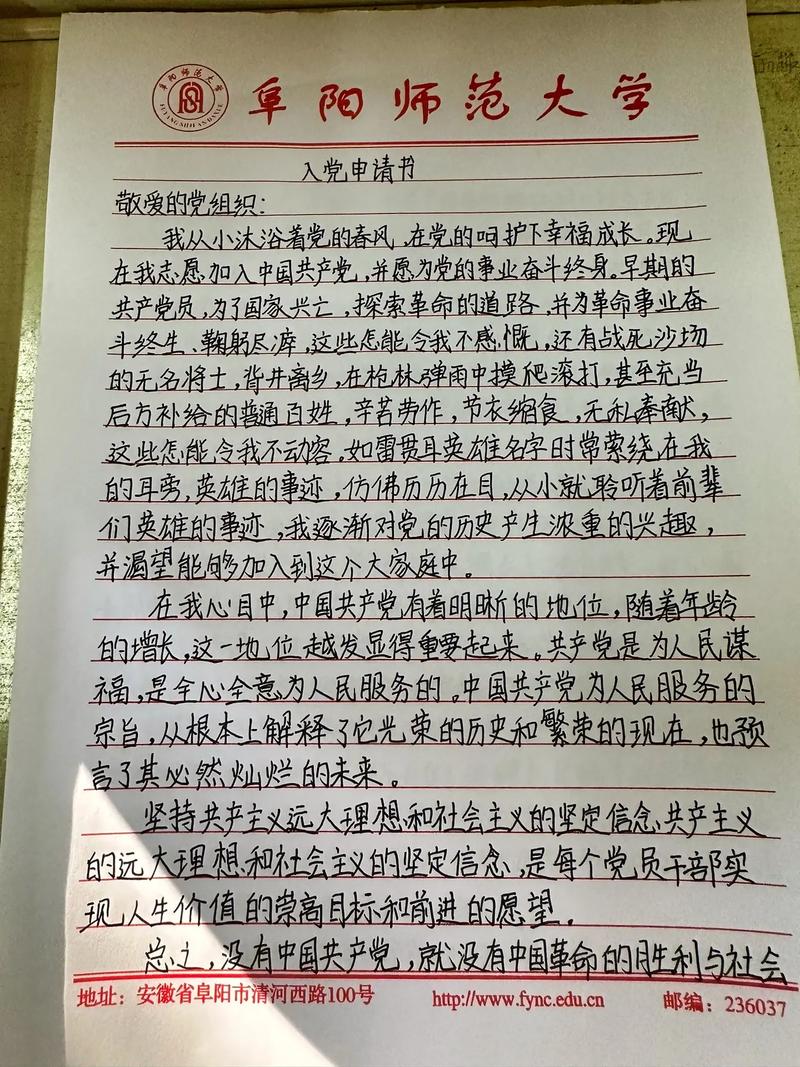 阜阳师范大学
入党申请书
敬爱的党组织：
我从小沐浴着党的春风，在党的呵护下幸福成长。现
在我志愿加入中国共产党，并愿为党的事业奋斗终身。早期的
共产党员，为了国家兴亡，探索革命的道路，并为革命事业奋
斗终生、鞠躬尽瘁，这些怎能令我不感慨，还有战死沙场
的无名将士，背井离乡，在枪林弹雨中摸爬滚打，甚至充当
后方补给的普通百姓，辛苦劳作，节衣缩食，无私奉献，
这些怎能令我不动容，如雷贯耳英雄名字时常萦绕在我
的耳旁，英雄的事迹，仿佛历历在目，从小就聆听着前辈
们英雄的事迹，我逐渐对党的历史产生浓重的兴趣，
并渴望能够加入到这个大家庭中。
在我心目中，中国共产党有着明晰的地位，随着年龄
的增长，这一地位越发显得重要起来。共产党是为人民谋
福，是全心全意为人民服务的。中国共产党为人民服务的
宗旨，从根本上解释了它光荣的历史和繁荣的现在，也预
言了其必然灿烂的未来。
坚持共产主义远大理想和社会主义的坚定信念、共产主义
的远大理想和社会主义的坚定信念，是每个党员干部实
现人生价值的崇高目标和前进的愿望。
总之，没有中国共产党，就没有中国革命的胜利与社会
地址：安徽省阜阳市清河西路100号 http://www.fync.edu.cn 邮编：236037